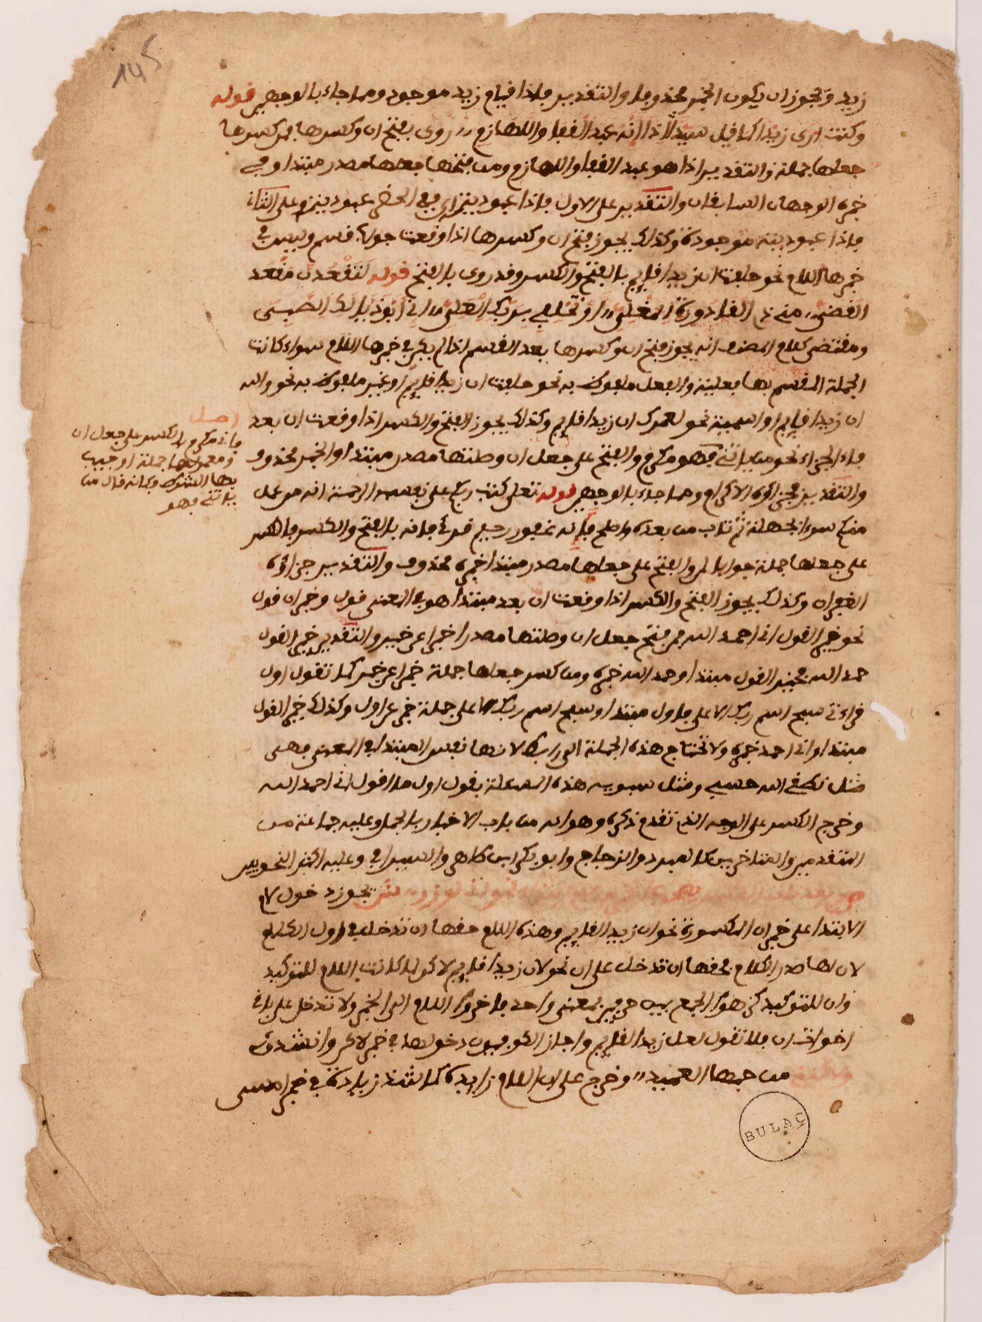 145
زيد ويجوز ان يكون الخبر محذوفا والتقدير فاذا قيام زيد موجود ومما جاء بالوجهين قوله
وكنت ارى زيدا كما قيل سيدا اذا انه عبد القفا واللهازم روى بفتح ان وكسرها فمن كسرها
جعلها جملة والتقدير اذا هو عبد القفا واللهازم ومن فتحها جعلها مصدر مبتدا وفي
خبره الوجهان السابقان والتقدير على الاول فاذا عبوديته اي ففي الحضرة عبوديته وعلى الثاني
فاذا عبوديته موجودة وكذلك يجوز فتح ان وكسرها اذا وقعت جواب قسم وليس في
خبرها اللام نحو حلفت ان زيدا قايم بالفتح والكسر وقد روى بالفتح قوله لتقعدن مقعد
القصي مني ذي القاذورة المقلي او تحلفي بربك العلي اني ابو ذيالك الصبي
ومقتضى كلام المصنف انه يجوز فتح ان وكسرها بعد القسم اذا لم يكن في خبرها اللام سواء كانت
الجملة المقسم بها فعلية والفعل ملفوظ به نحو حلفت ان زيدا قايم او غير ملفوظ به نحو والله
ان زيدا قايم او اسمية نحو لعمرك ان زيدا قايم وكذلك يجوز الفتح والكسر اذا وقعت ان بعد
فاء الجزاء نحو من ياتني فهو مكرم والفتح على جعل ان وصلتها مصدر مبتدا والخبر محذوف
اصل
فانه مكرم فالكسر على جعل ان
ومعموليها جملة اوجيب
بها الشرط فكانه قال من
ياتني فهو
والتقدير فجزاؤه الاكرام ومما جاء بالوجهين قوله تعلى كتب ربكم على نفسه الرحمة انه من عمل
منكم سوءا بجهالة ثم تاب من بعده واصلح فانه غفور رحيم قرئ فانه بالفتح والكسر فالكسر
على جعلها جملة جوابا لمن والفتح على جعلها مصدر مبتدا خبره محذوف والتقدير جزاؤه
الغفران وكذلك يجوز الفتح والكسر اذا وقعت ان بعد مبتدا هو في المعنى قول وخبر ان قول
نحو خير القول اني احمد الله فمن فتح جعل ان وصلتها مصدرا خبرا عن خير والتقدير خير القول
حمد الله فخير القول مبتدا وحمد الله خبره ومن كسر جعلها جملة خبرا عن خير كما تقول اول
قراءتي سبح اسم ربك الاعلى فاول مبتدا وسبح اسم ربك الاعلى جملة خبر عن اول وكذلك خير القول
مبتدا واني احمد خبره ولا تحتاج هذه الجملة الى رابط لانها نفس المبتدا في المعنى فهي
مثل نطقي الله حسبي ومثل سبويه هذه المسئلة بقول اول ما اقول اني احمد الله
وخرج الكسر على الوجه الذي تقدم ذكره وهو انه من باب الاخبار بالجمل وعليه جماعة من
المتقدمين والمتاخرين كالمبرد والزجاج وابو بكر ابن طاهر والسيرافي وعليه اكثر النحويين
يجوز دخول لام
الابتدا على خبر ان المكسورة نحو ان زيدا لقايم وهذه اللام حقها ان تدخل في اول الكلام
لان لها صدر الكلام فحقها ان تدخل على ان نحو لان زيدا قايم لاكن لما كانت اللام للتوكيد
وان للتوكيد كرهوا الجمع بين حرفين بمعنى واحد فاخروا اللام الى الخبر ولا تدخل على باقي
اخوات ان فلا تقول لعل زيدا لقايم واجاز الكوفيون دخولها في خبر لاكن وانشدوا
ولاكنني من حبها لعميد وخرج على ان اللام زايدة كما شذ زيادتها في خبر امسى
BULAC